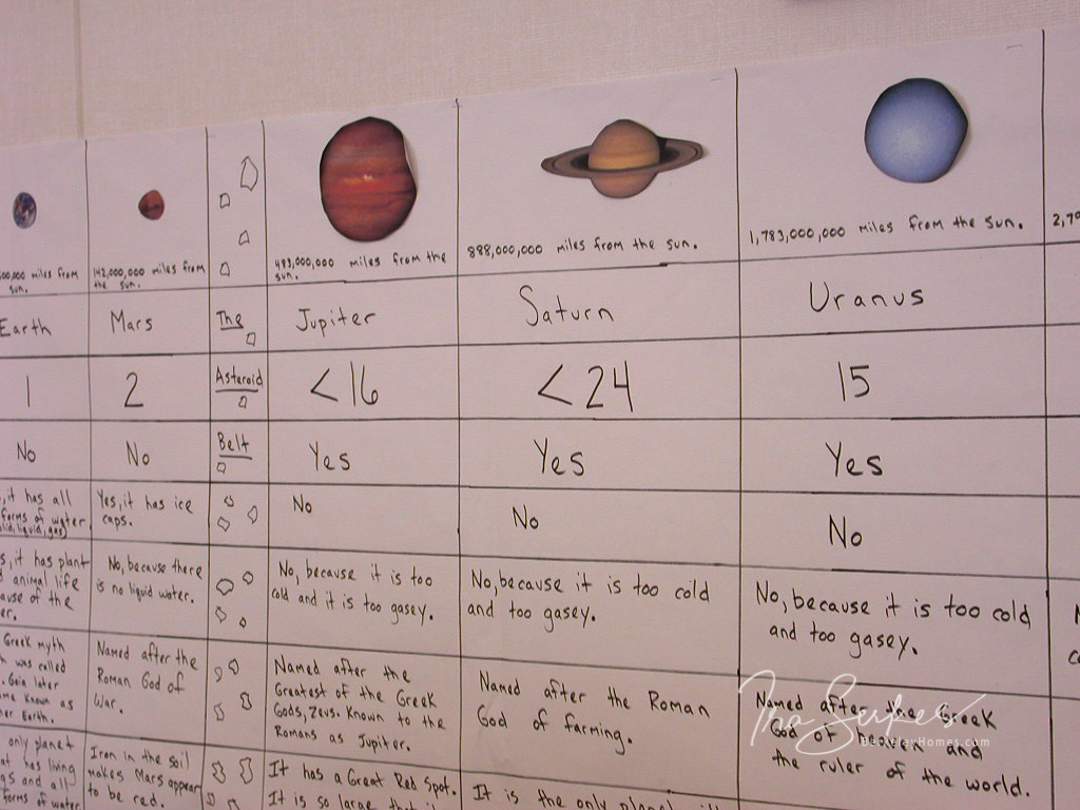 000,000 miles from
sun.
142,000,000 miles from
the sun.
483,000,000 miles from the
sun.
888,000,000 miles from the sun.
1,783,000,000 miles from the sun.
2,79
Earth
Mars
The
Jupiter
Saturn
Uranus
1
2
Asteroid
<16
<24
15
No
No
Belt
Yes
Yes
Yes
, it has all
forms of water
liquid, gas)
Yes, it has ice
caps.
No
No
No
s, it has plant
d animal life
ause of the
er.
No, because there
is no liquid water.
No, because it is too
cold and it is too gasey.
No, because it is too cold
and too gasey.
No, because it is too cold
and too gasey.
Greek myth
h was called
. Gaia later
me known as
her Earth.
Named after the
Roman God of
War.
Named after the
Greatest of the Greek
Gods, Zeus. Known to the
Romans as Jupiter.
Named after the Roman
God of farming.
Named after the Greek
God of heaven and
the ruler of the world.
only planet
at has living
gs and all
forms of water
Iron in the soil
makes Mars appear
to be red.
It has a Great Red Spot.
It is so large that
It is the only planet
BeutlerHomes.com